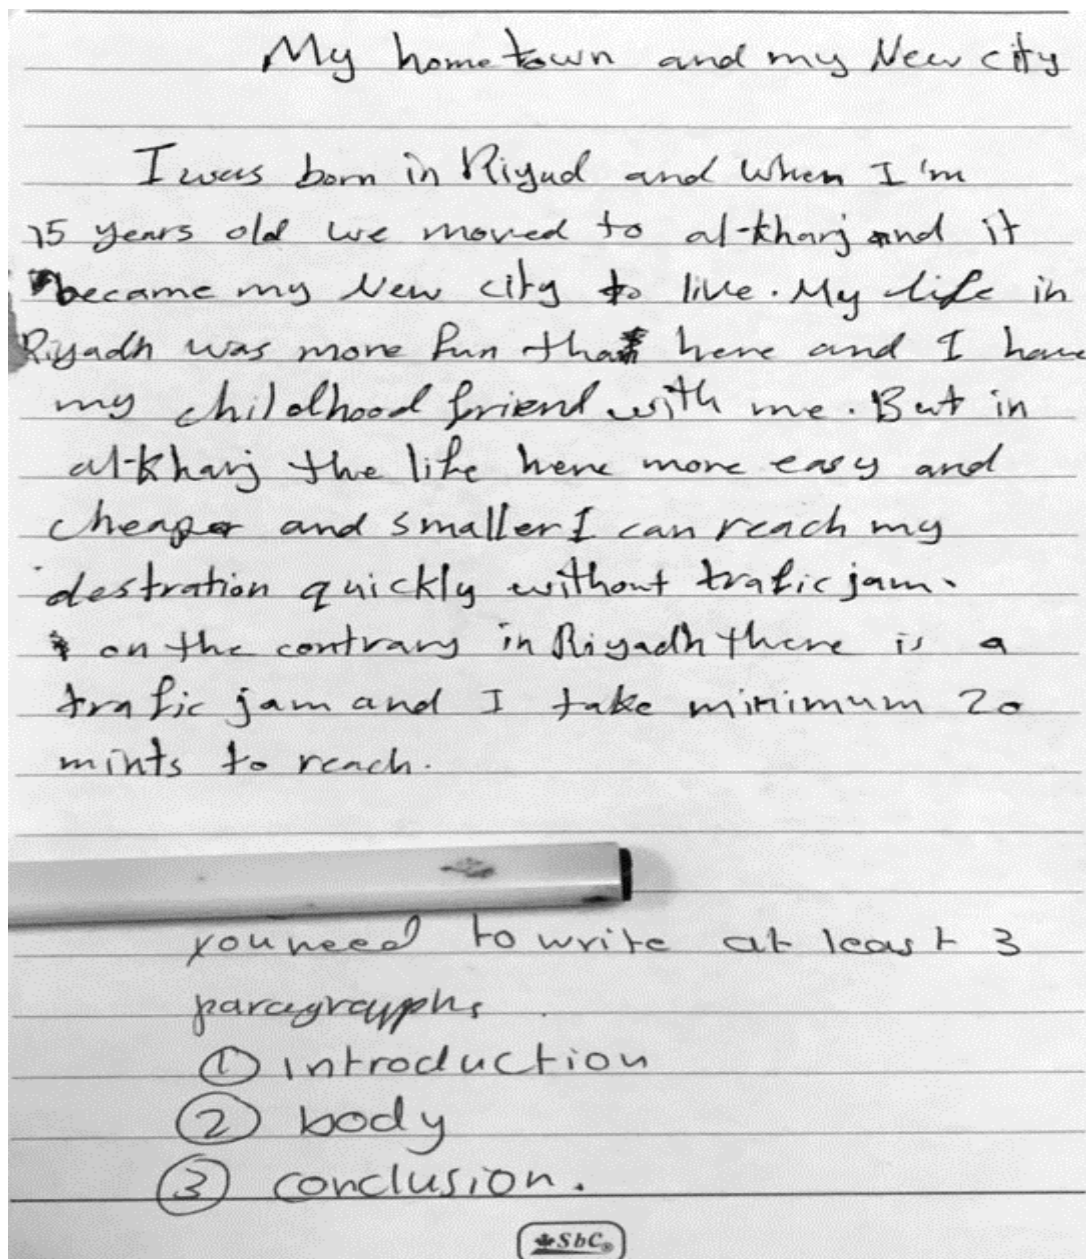 My hometown and my New city
I was born in Riyad and when I'm
15 years old we moved to al-kharj and it
became my New city to live. My life in
Riyadh was more fun than here and I have
my childhood friend with me. But in
al-kharj the life here more easy and
cheaper and smaller I can reach my
destration quickly without trafic jam.
on the contrary in Riyadh there is a
trafic jam and I take minimum 20
mints to reach.
you need to write at least 3
paragrapphs
① introduction
② body
③ conclusion.
SbC